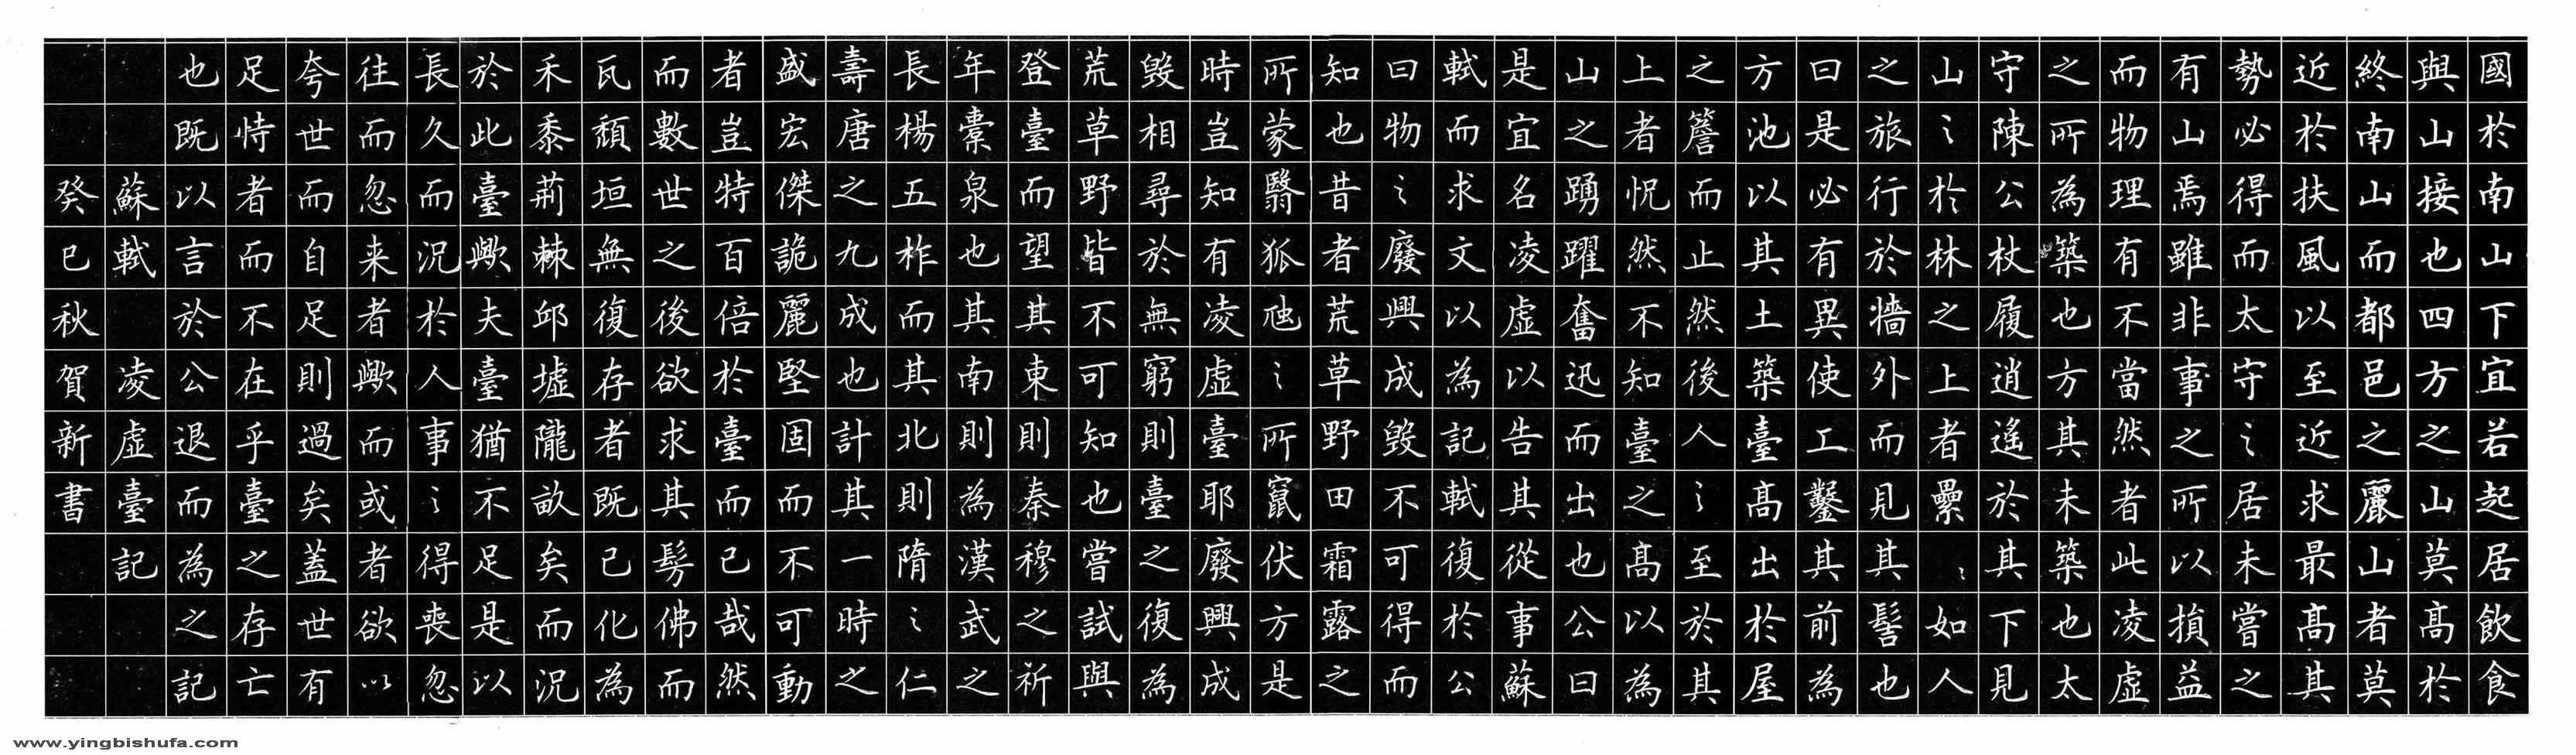 國於南山下宜若起居飲食
與山接也四方之山莫高於
終南山而都邑之麗山者莫
近於扶風以至近求最高其
勢必得而太守〻居未嘗之
有山焉雖非事之所以損益
而物理有不當然者此凌虛
之所為築也方其未築也太
守陳公杖履逍遙於其下見
山〻於林之上者纍〻如人
之旅行於牆外而見其髻也
曰是必有異使工鑿其前為
方池以其土築臺高出於屋
之簷而止然後人〻至於其
上者怳然不知臺之高以為
山之踴躍奮迅而出也公曰
是宜名凌虛以告其從事蘇
軾而求文以為記軾復於公
曰物〻廢興成毀不可得而
知也昔者荒草野田霜露之
所蒙翳狐虺〻所竄伏方是
時豈知有凌虛臺耶廢興成
毀相尋於無窮則臺之復為
荒草野皆不可知也嘗試與
登臺而望其東則秦穆之祈
年橐泉也其南則為漢武之
長楊五柞而其北則隋〻仁
壽唐之九成也計其一時之
盛宏傑詭麗堅固而不可動
者豈特百倍於臺而已哉然
而數世之後欲求其髣佛而
瓦頹垣無復存者既已化為
禾黍荊棘邱墟隴畝矣而況
於此臺歟夫臺猶不足是以
長久而況於人事〻得喪忽
往而忽来者歟而或者欲以
夸世而自足則過矣蓋世有
足恃者而不在乎臺之存亡
也既以言於公退而為之記
蘇軾 凌虛臺記
癸巳秋賀新書
www.yingbishufa.com